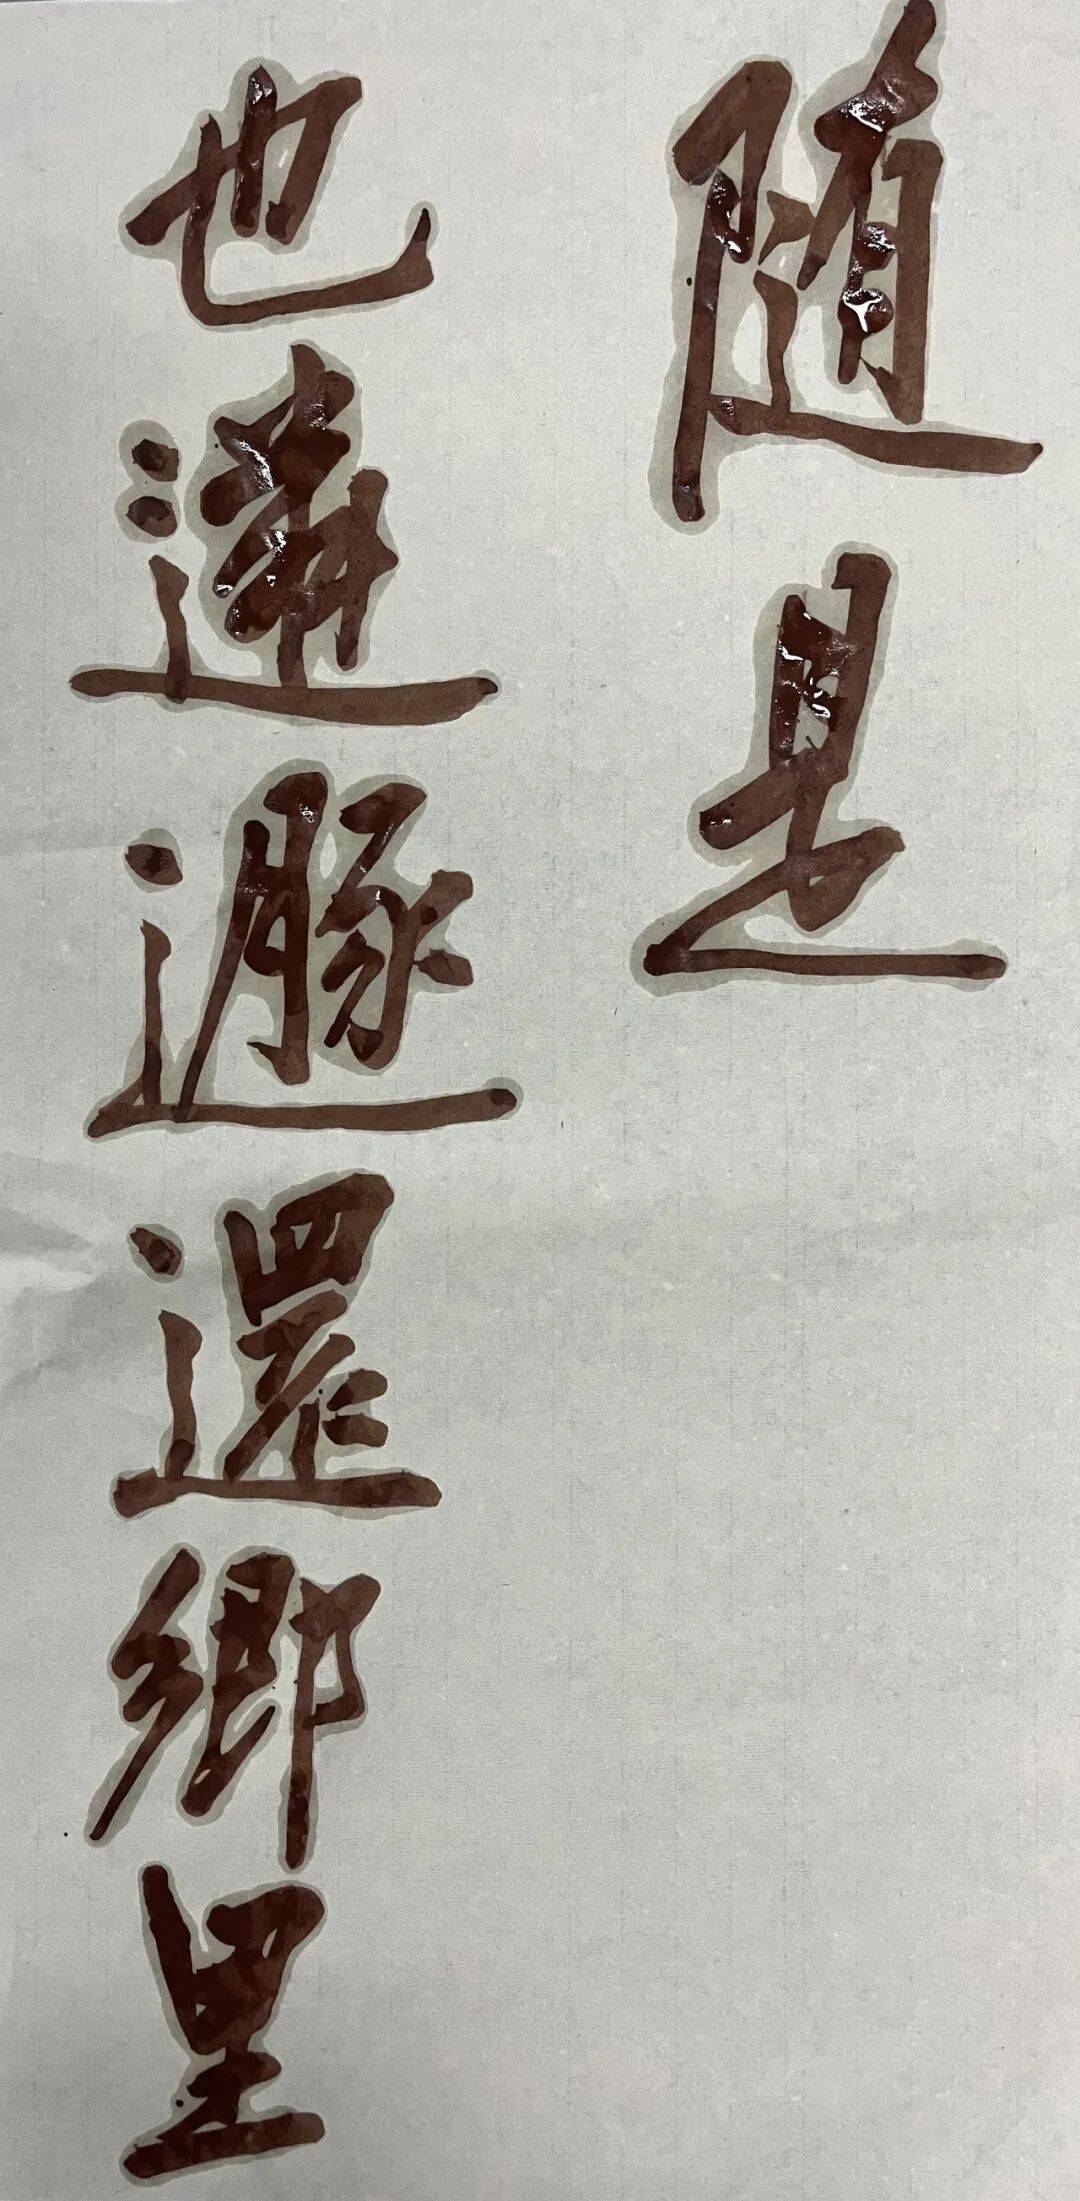 随是
也遯還鄉里